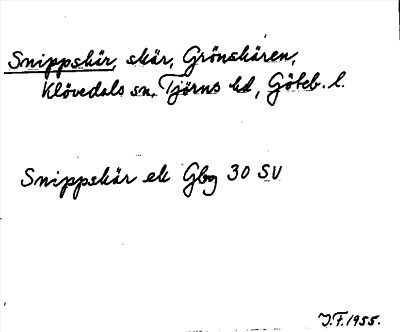 Snippskär, skär, Grönskären,
Klövedals sn, Tjörns hd, Göteb. l.
Snippskär ek Gbg 30 SV
J.F. 1955.